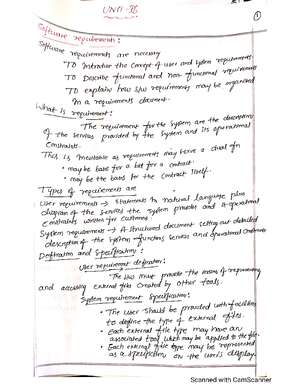 UNIT-II
1
Software requirements:
Software requirements are necessary
To Introduce the Concept of user and System requirements.
To Describe functional and non-functional requirements
To explain how S/w requirements may be organised
In a requirements document.
What is requirement:
The requirement for the System are the description
of the services provided by the System and its operational
Constraints.
This is inevitable as requirements may serve a dual fn
• may be base for a bid for a contract.
• may be the basis for the Contract itself.
Types of requirements are
User requirements → Statements in natural language plus
diagram of the services the system provides and its operational
constraints written for customers
System requirements → A structured document setting out detailed
description of the system functions, services and operational Constraints
Definition and Specification:
User requirement definition:
The S/w must provide the means of representing
and accessing external files created by other tools.
System requirement Specification:
• The user should be provided with facilities
to define the type of external files.
• Each external file type may have an
associated tool which may be applied to the file.
• Each external file type may be represented
as a specific icon on the user's display.
Scanned with CamScanner